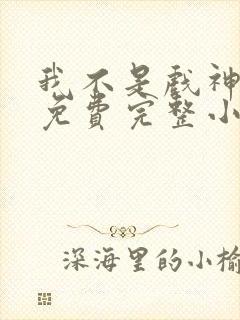 我不是戏神
免费完整小
深海里的小榆